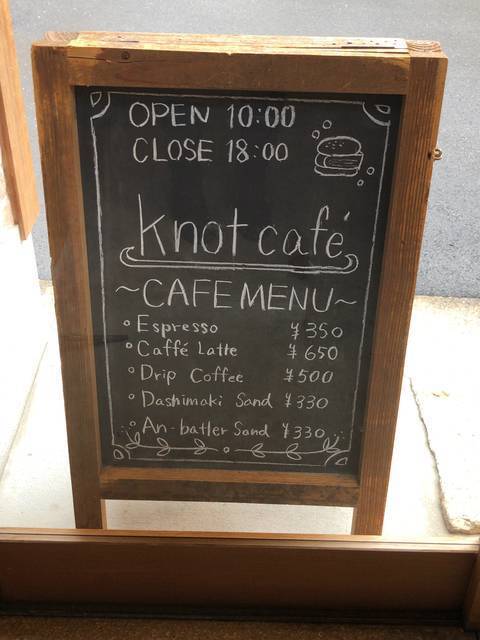 OPEN 10:00
CLOSE 18:00
knot café
~CAFE MENU~
◦Espresso ¥350
◦Caffé Latte ¥650
◦Drip Coffee ¥500
◦Dashimaki Sand ¥330
◦An-batler Sand ¥330